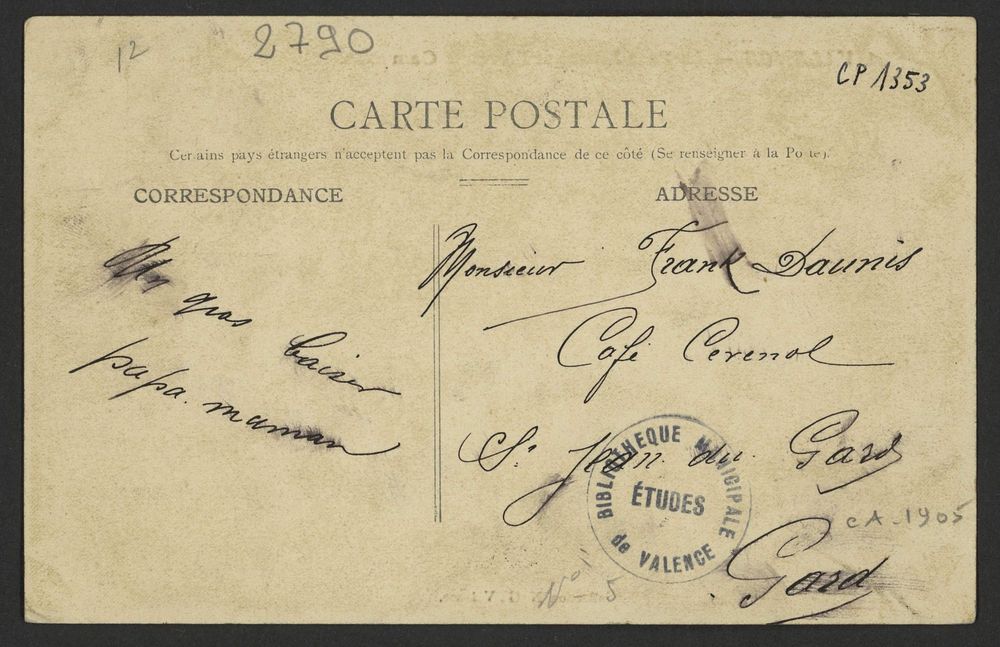 12
2790
CP 1353
CARTE POSTALE
Certains pays étrangers n'acceptent pas la Correspondance de ce côté (Se renseigner à la Poste).
CORRESPONDANCE
ADRESSE
gros baiser
papa. maman
Monsieur Frank Daunis
Café Cevenol
St Jean du Gard
Gard
BIBLIOTHEQUE MUNICIPALE
ÉTUDES
de VALENCE
CA-1905
N° 5